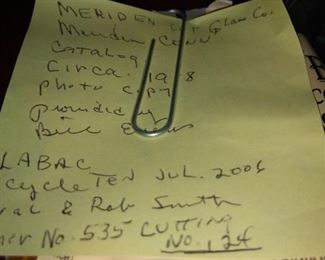 MERIDEN CUT Glass Co.
Meriden CONN.
Catalog
Circa 19 8
Photo copy
provided by
Bill Evans
LABAC
cycleTED JUL. 2006
val & Rob Smith
ner No. 535 CUTTING
No. 124